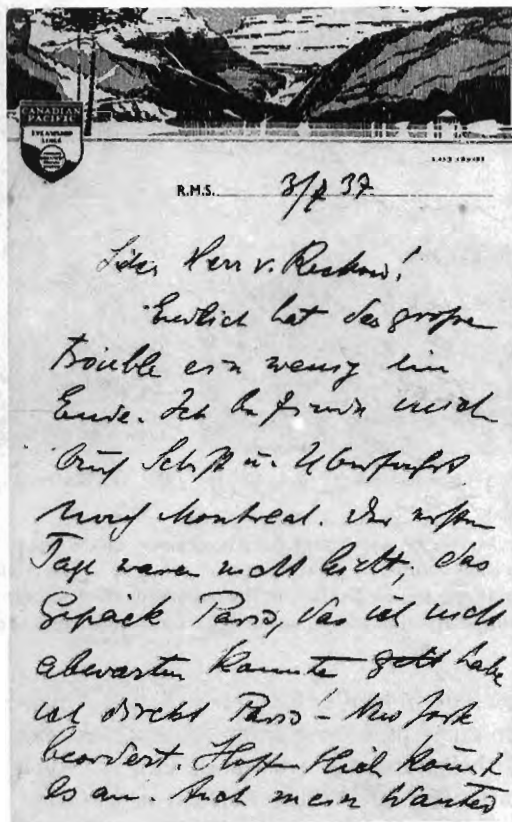 CANADIAN
PACIFIC
STEAMSHIP
LINES
R.M.S. 37
Herr v.
Endlich hat das große
trouble ein wenig ein
Ende. Ich befinde mich
auf Schiff u. Überfahrt
nach Montreal. Die ersten
Tage waren nicht leicht; das
Gepäck Paris, das ich nicht
abwarten konnte habe
ich direkt Paris - New York
beordert. Hoffentlich kommt
es an. Auch mein